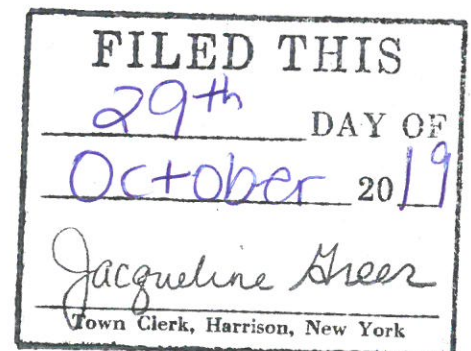 FILED THIS
29th DAY OF
October 2019
Jacqueline Greer
Town Clerk, Harrison, New York